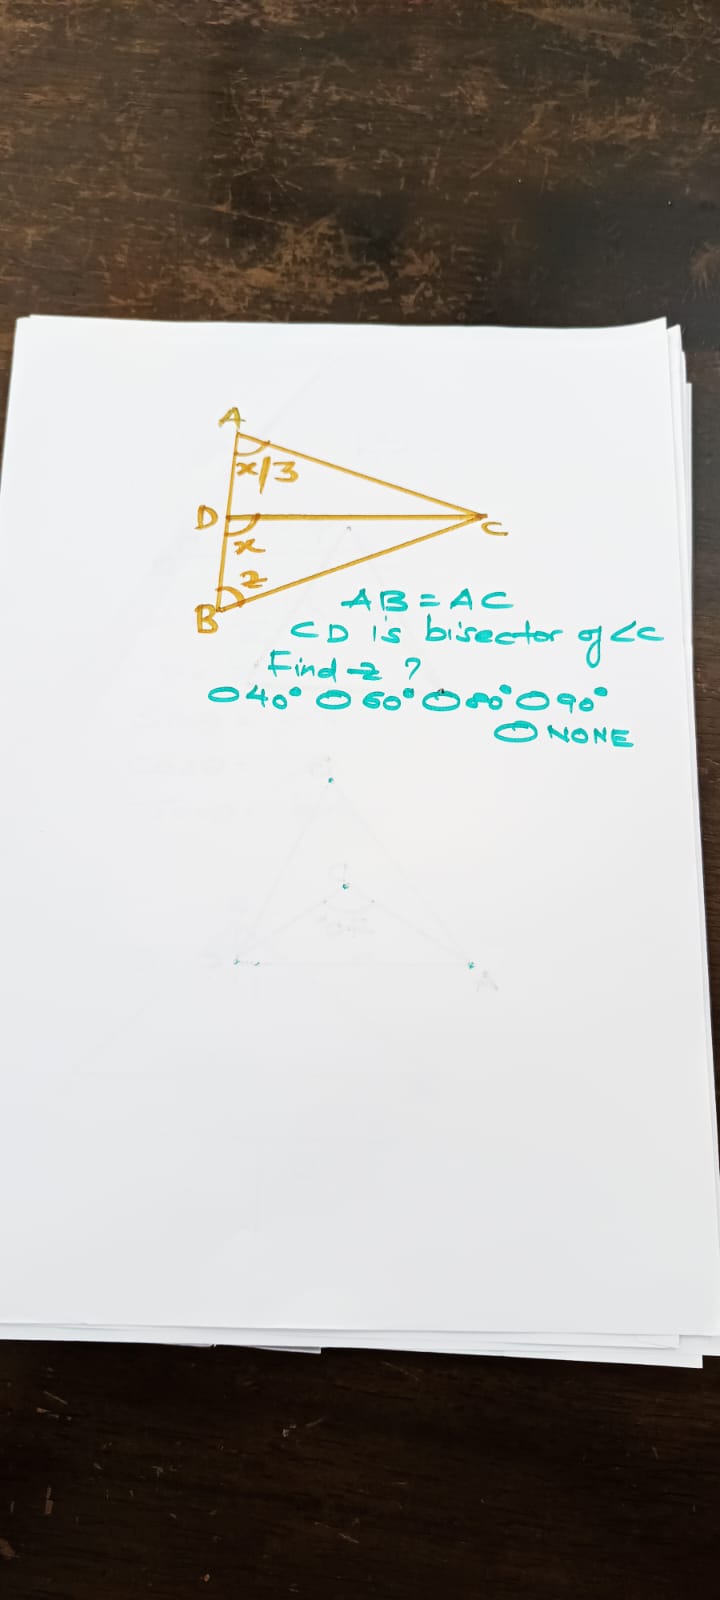 A
x/3
D
C
x
z
B
AB = AC
CD is bisector of <C
Find z ?
40° 60° 80° 90°
NONE